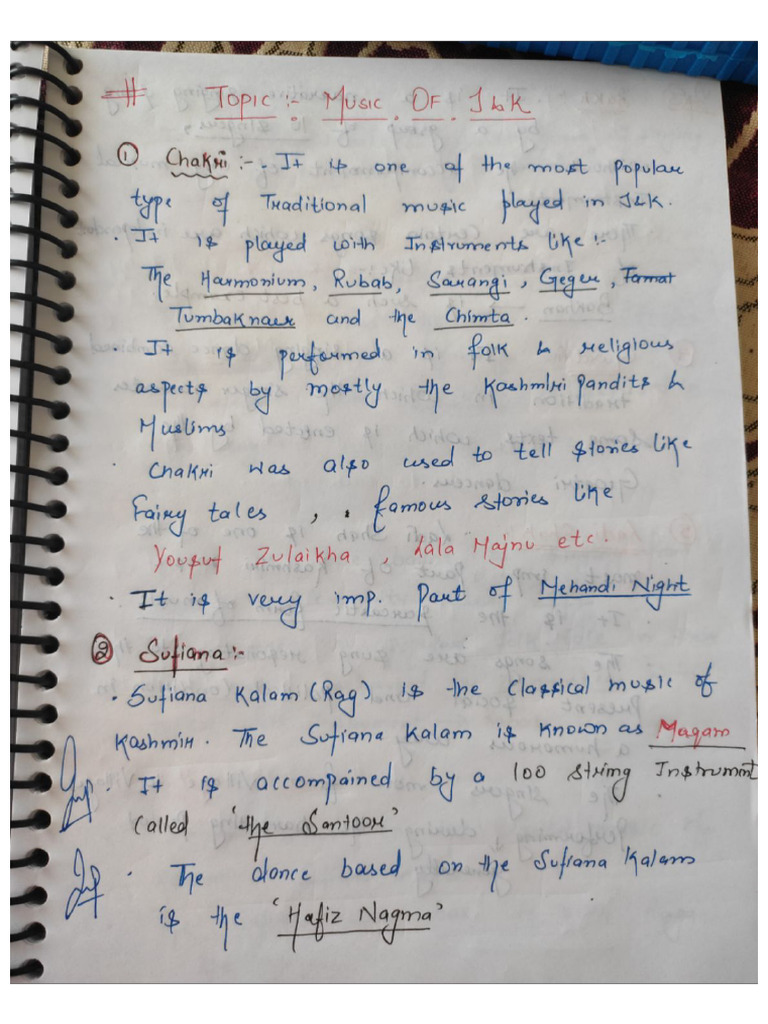 # Topic :- Music Of J&K
① Chakri :- . It is one of the most popular
type of Traditional music played in J&K.
. It is played with Instruments like :-
The Harmonium, Rubab, Sarangi, Geger, Tamat
Tumbaknaer and the Chimta.
. It is performed in folk & religious
aspects by mostly the Kashmiri Pandits &
Muslims
. Chakri was also used to tell stories like
Fairy tales , . famous stories like
Yousuf Zulaikha , Lala Majnu etc.
. It is very imp. Part of Mehandi Night
② Sufiana :-
. Sufiana Kalam (Rag) is the classical music of
Kashmir. The Sufiana Kalam is known as Maqam
. It is accompained by a 100 string Instrument
called 'the Santoor'
. The dance based on the Sufiana Kalam
is the 'Hafiz Nagma'